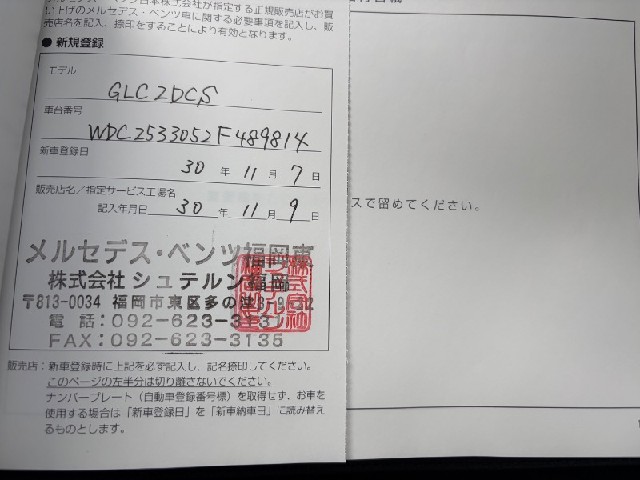 メルセデス・ベンツ日本株式会社が指定する正規販売店がお買
い上げのメルセデス・ベンツ車に関する必要事項を記入し、販
売店名を記入、捺印をすることにより有効となります。
● 新規登録
モデル
GLC2DCS
車台番号
WDC2533052F489814
新車登録日
30 年 11 月 7 日
販売店名/指定サービス工場名
記入年月日 30 年 11 月 9 日
メルセデス・ベンツ福岡東
株式会社 シュテルン福岡
〒813-0034 福岡市東区多の津
電 話:092-623-3131
FAX:092-623-3135
販売店:新車登録時に上記を必ず記入し、記名捺印してください。
このページの左半分は切り離さないでください。
ナンバープレート(自動車登録番号標)を取得せず、お車を
使用する場合は「新車登録日」を「新車納車日」に読み替え
るものとします。
スで留めてください。